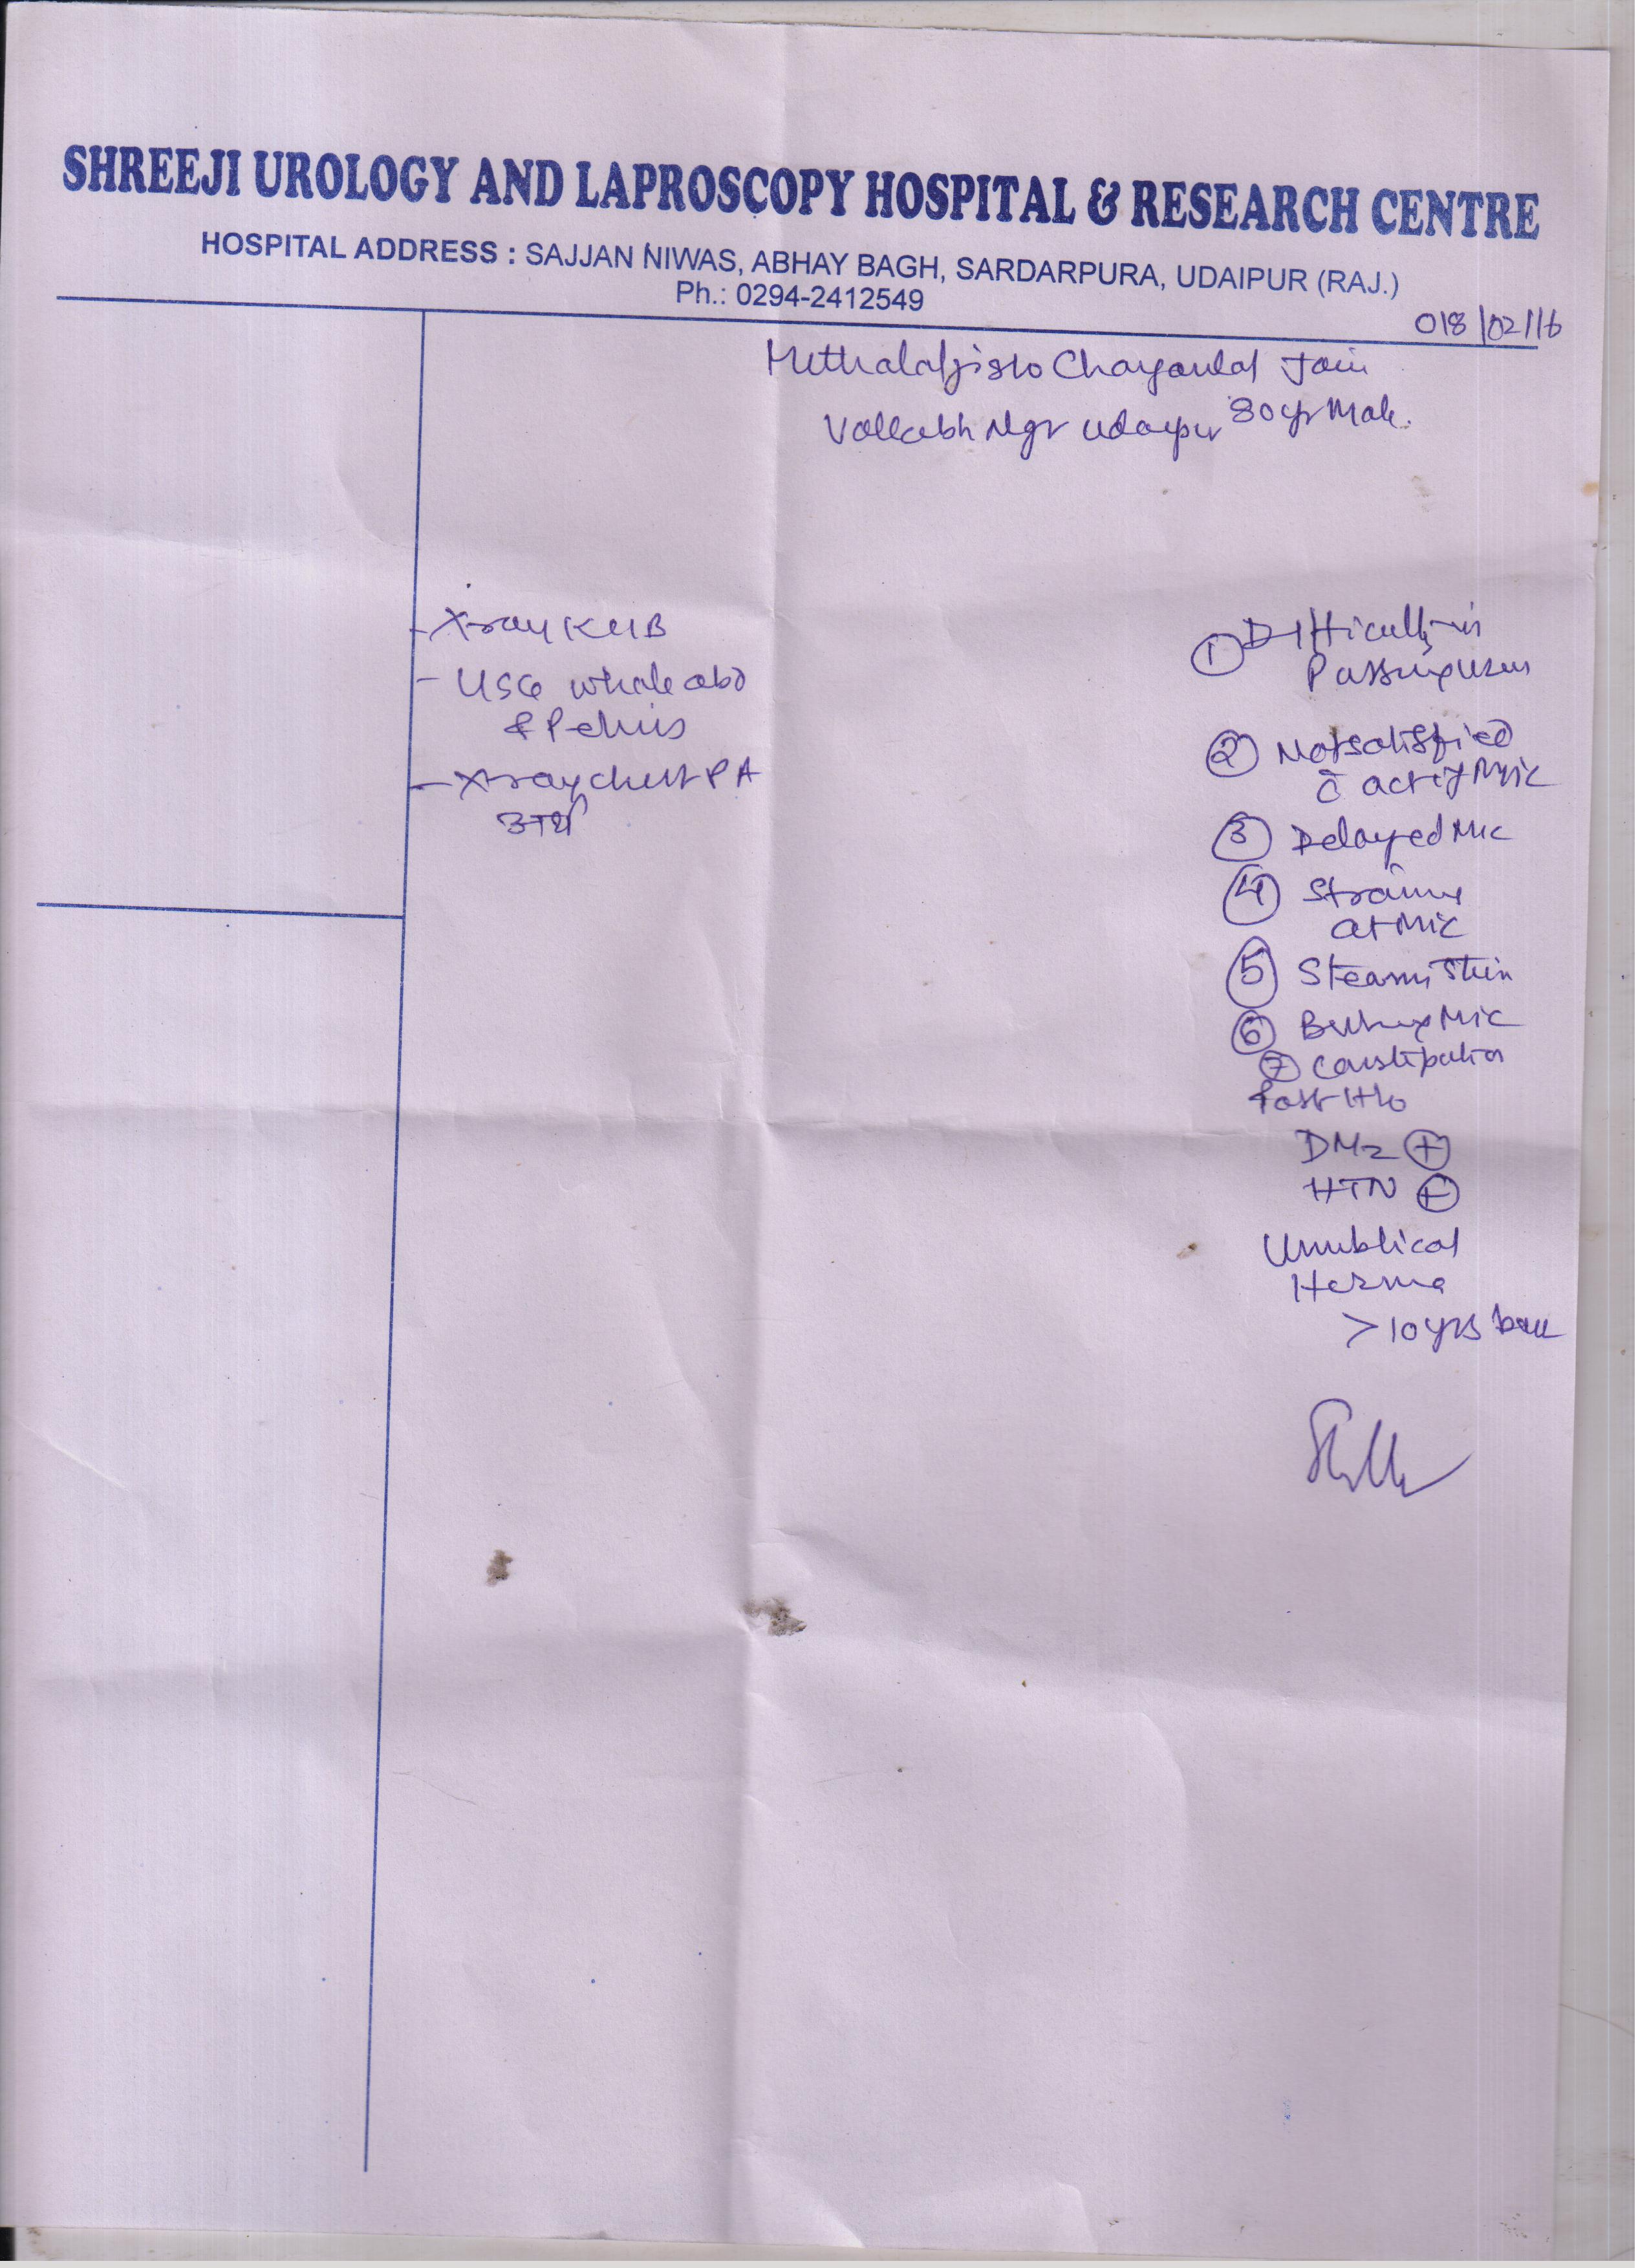 SHREEJI UROLOGY AND LAPROSCOPY HOSPITAL & RESEARCH CENTRE
HOSPITAL ADDRESS : SAJJAN NIWAS, ABHAY BAGH, SARDARPURA, UDAIPUR (RAJ.)
Ph.: 0294-2412549
018/02/16
Jain
Vallabh Ngr Udaipur 80 yr Male.
- X-ray KUB
- USG whole abd
& Pelvis
- X-ray chest PA
① Difficulty in
Passing urine
② Not satisfied
c̄ act of Mic
③ Delayed Mic
④ Straining
at Mic
⑤ Stream Thin
⑥ Burning Mic
⑦ Constipation
Past H/o
DM2 ⊕
HTN
Umublical
Hernia
>10 yrs back